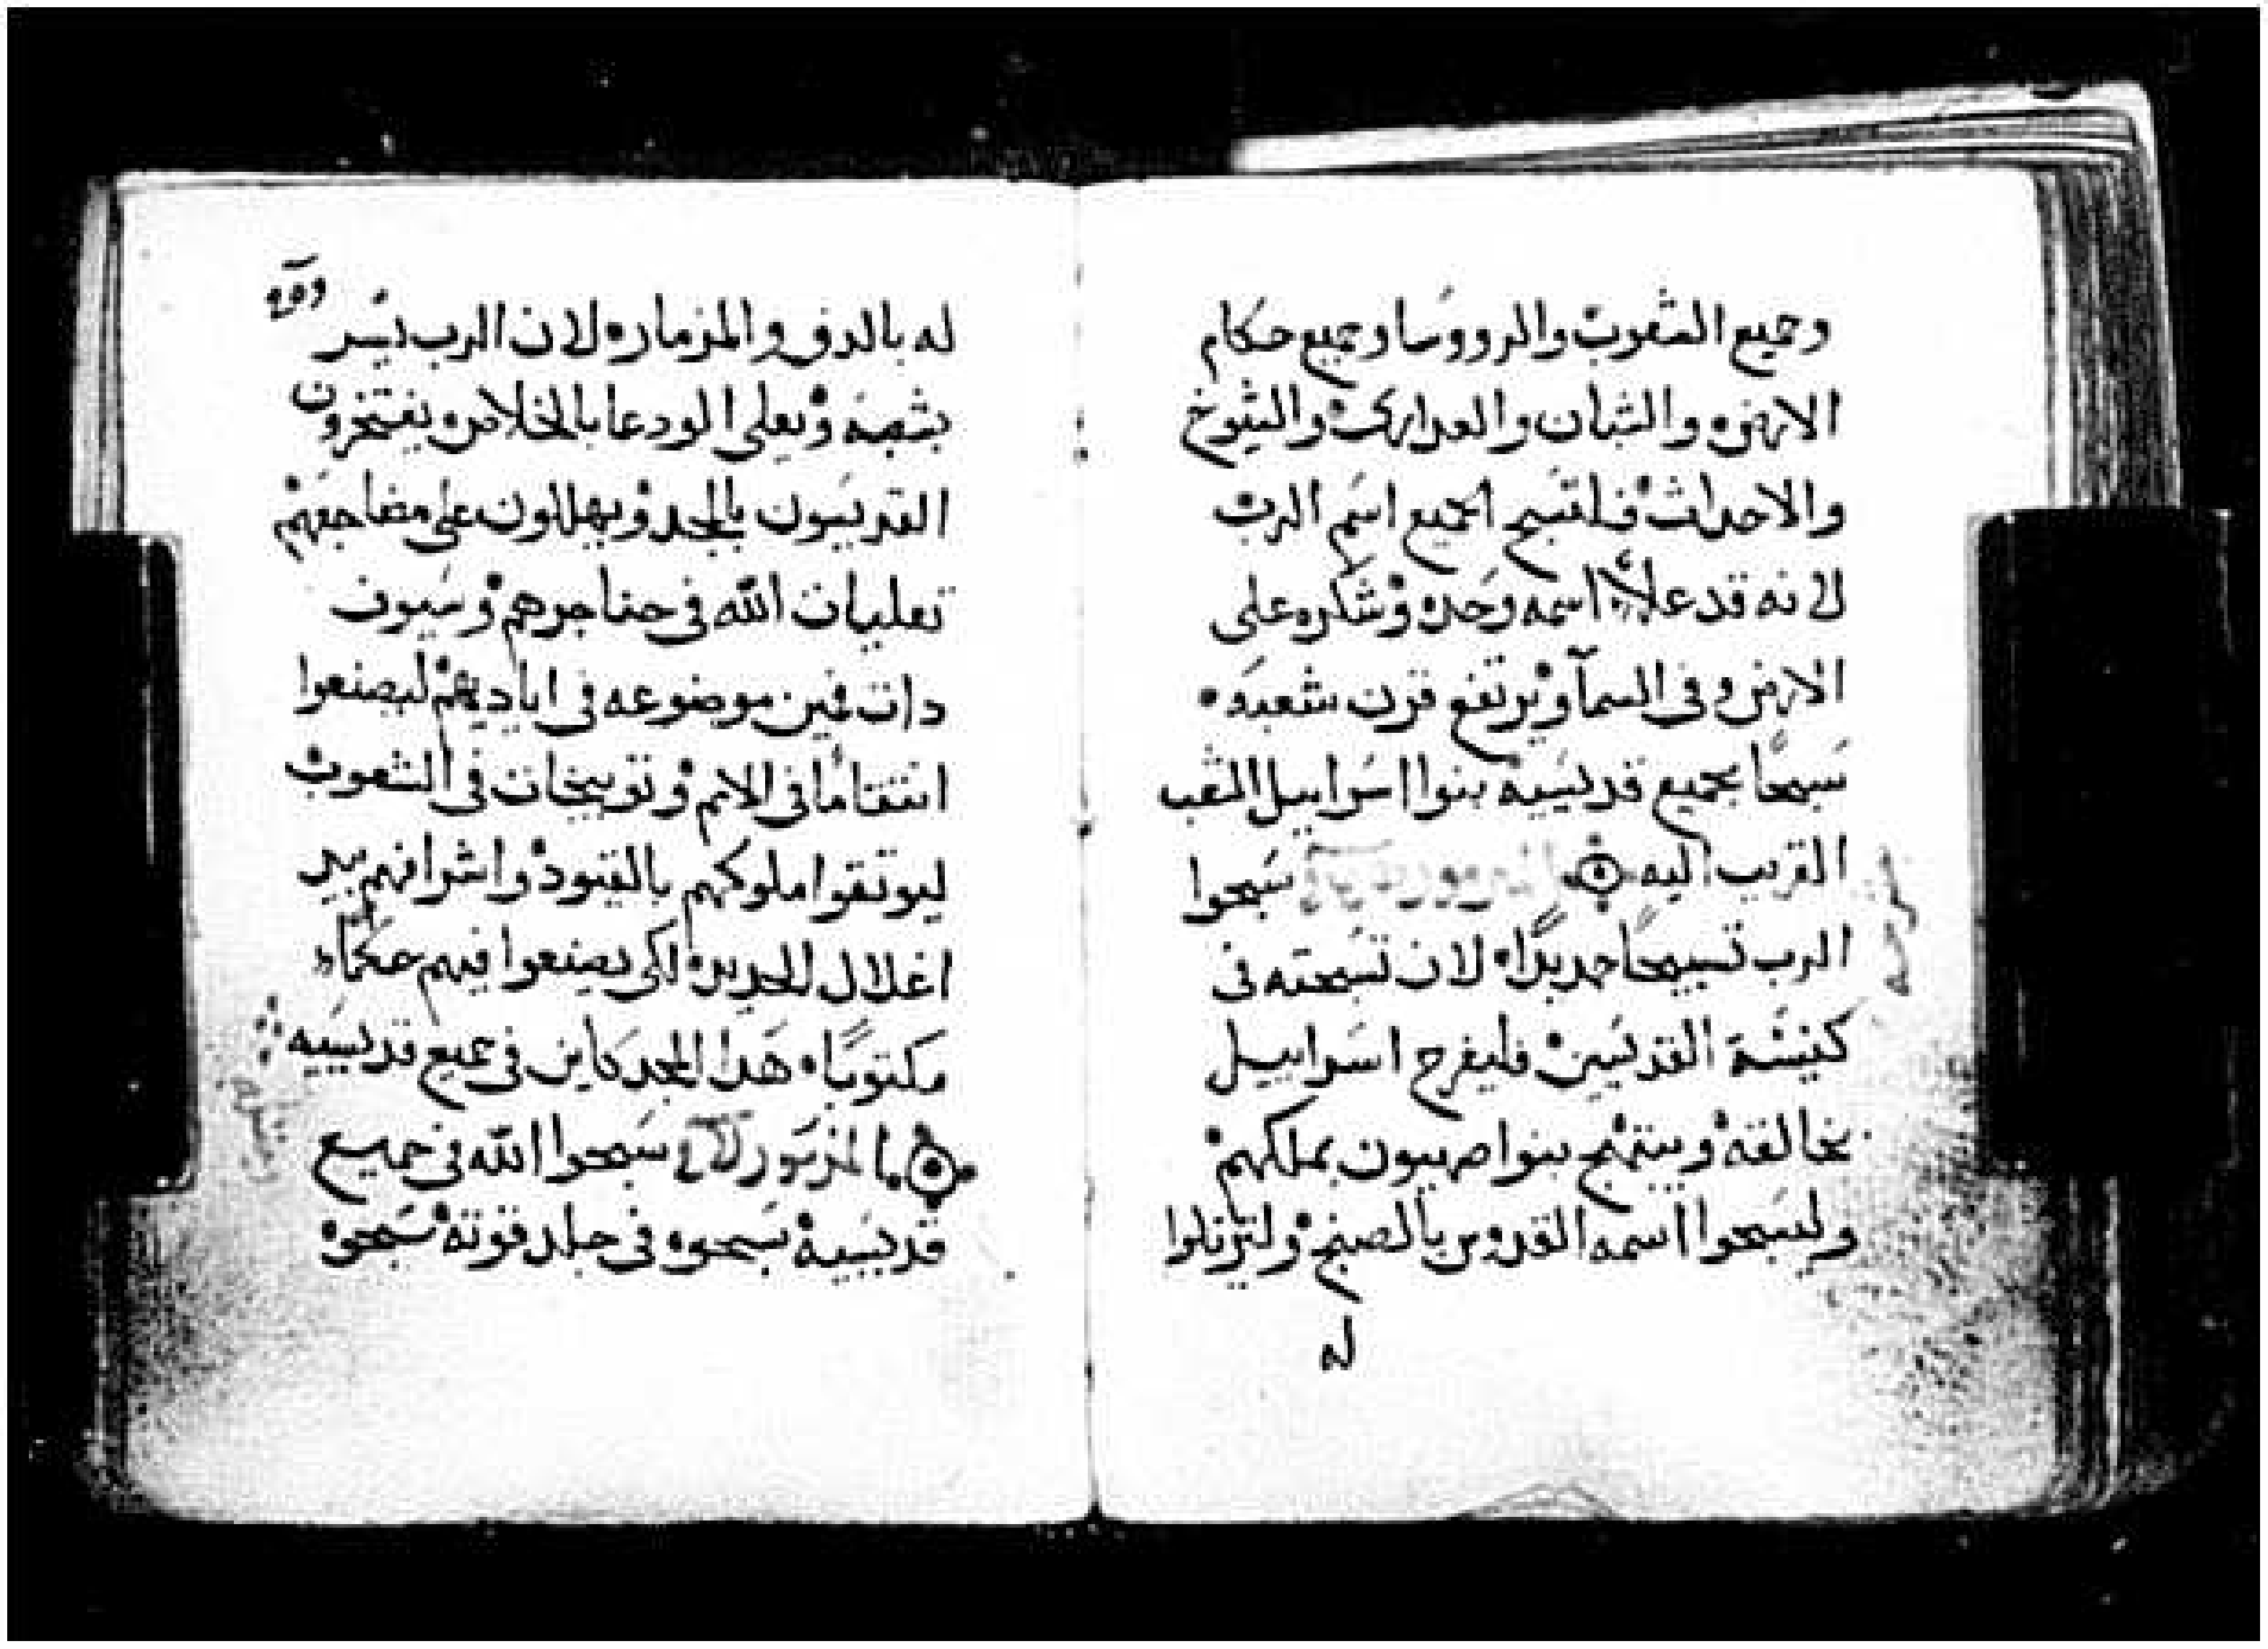 وجميع الشعوب والرووسا وجميع حكام
الارض والشبان والعدارى والشيوخ
والاحداث فلتسبح الجميع اسم الرب
لانه قد علا اسمه وحده وشكره على
الارض وفى السما ويرتفع قرن شعبه
سبحا بجميع قديسيه بنوا اسراييل الشعب
القريب اليه سبحوا
الرب تسبيحا جديدا لان تسبحته فى
كنيسة القديسين فليفرح اسراييل
بخالقه ويبتهج بنوا صهيون بملكهم
وليسبحوا اسمه القدوس بالصنج وليرتلوا
له
له بالدف والمزمار لان الرب يسر
بشعبه ويعلى الودعا بالخلاص يفتخرون
القديسون بالمجد ويهللون على مضاجعهم
تعليات الله فى حناجرهم وسيوف
دات فمين موضوعه فى اياديهم ليصنعوا
انتقاما فى الامم وتوبيخات فى الشعوب
ليوتقوا ملوكهم بالقيود واشرافهم بيد
اغلال الحديد لكى يصنعوا فيهم حكما
مكتوبا هدا المجد كاين فى جميع قديسيه
المزمور سبحوا الله فى جميع
قديسيه سبحوه فى جلد قوته سبحوه